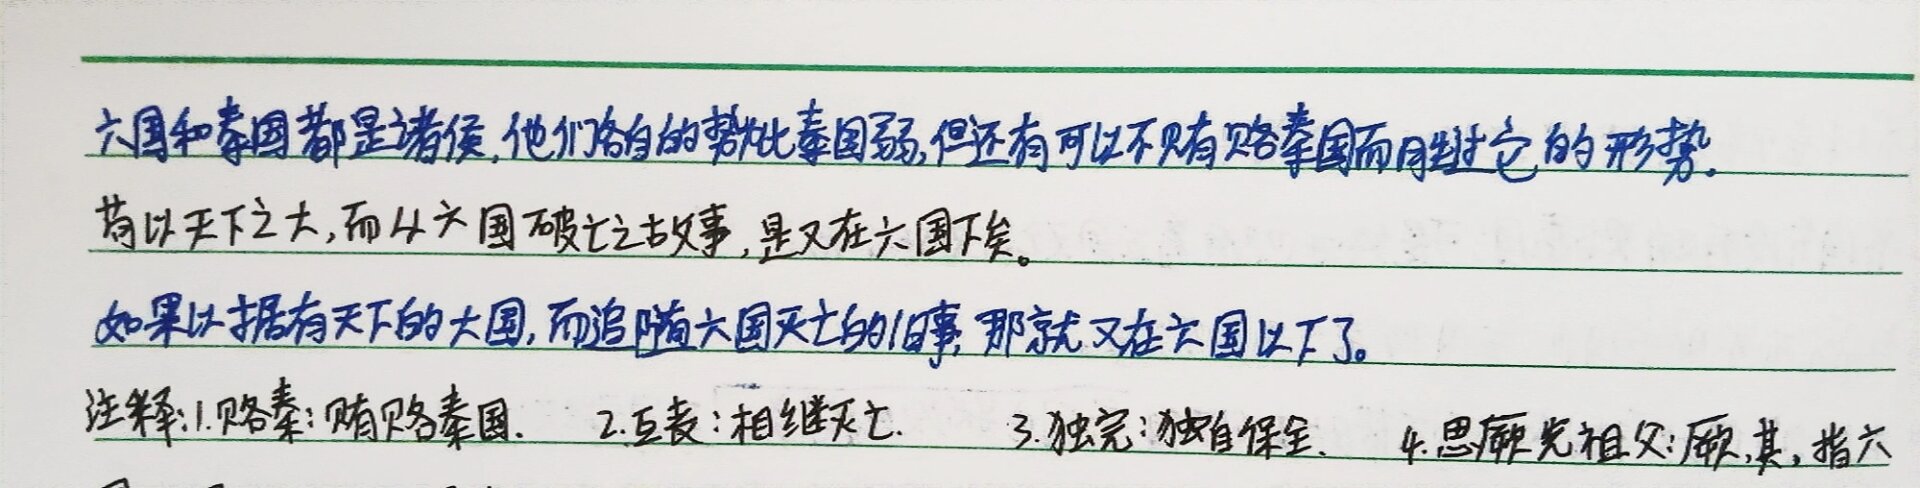 六国和秦国都是诸侯,他们各自的势比秦国弱,但还有可以不贿赂秦国而胜过它的形势。
苟以天下之大,而从六国破亡之故事,是又在六国下矣。
如果以据有天下的大国,而追随六国灭亡的旧事,那就又在六国以下了。
注释:1.赂秦:贿赂秦国. 2.互丧:相继灭亡. 3.独完:独自保全. 4.思厥先祖父:厥,其,指六